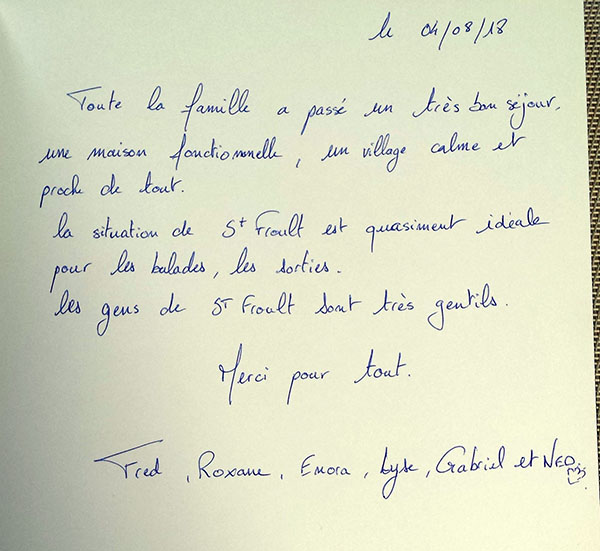 le 04/08/18
Toute la famille a passé un très bon séjour.
une maison fonctionnelle, un village calme et
proche de tout.
la situation de St Froult est quasiment idéale
pour les balades, les sorties.
les gens de ST Froult sont très gentils.
Merci pour tout.
Fred, Roxane, Enora, Lyse, Gabriel et NEO.